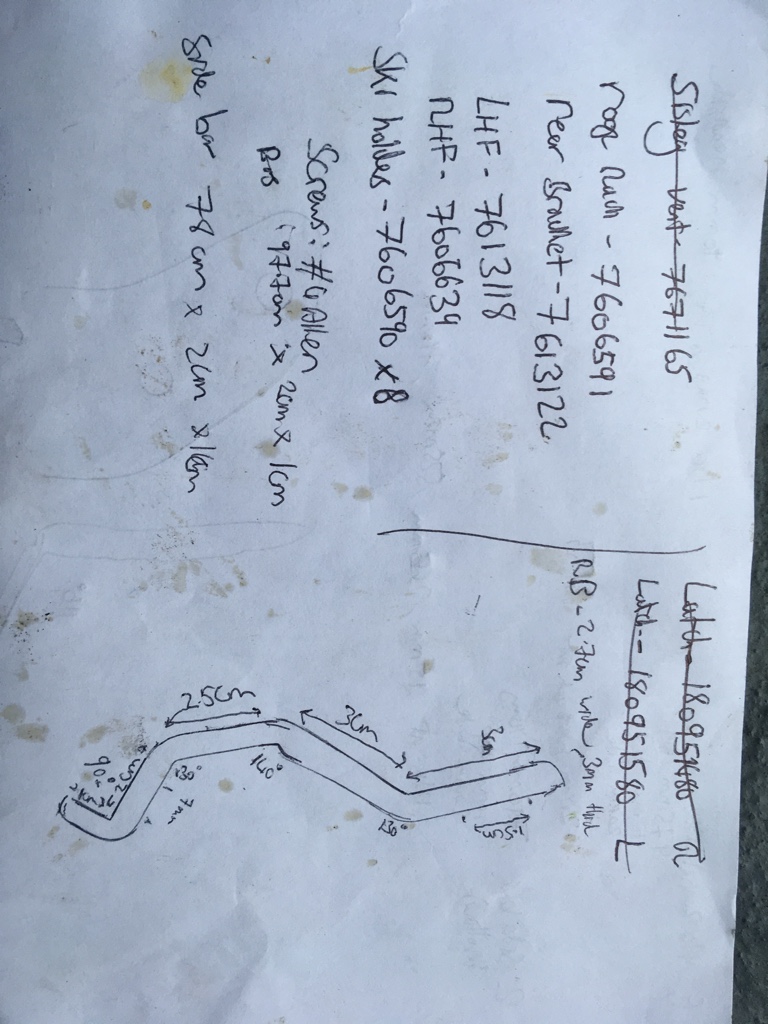 Sisley vent - 7671165
roof Rack - 7606591
rear Bracket - 7613122
LHF - 7613118
RHF - 7606634
Ski holders - 7606590 x8
Screws: #4 Allen
: 97.7cm x 2cm x 1cm
Side bar 78cm x 2cm x 1cm
Latch - R
Latch - 180951580 L
RB - 2.7cm wide, 3mm thick
3cm
3cm
2.5cm
140°
90°
7mm